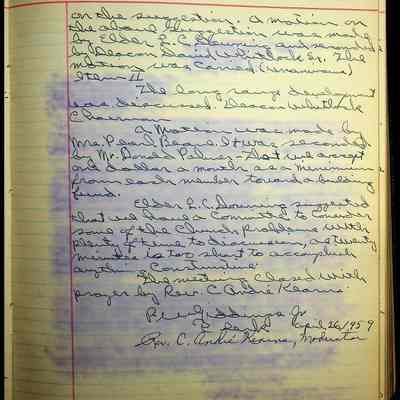 on the suggestion. A motion on
the above suggestion was made
by Elder L.C. Downing and seconded
by Deacon David Whitlock Sr. The
motion was carried. (unanimous)
Item II
The long range development
was discussed. Deacon Whitlock
Chairman
A Motion was made by
Mrs. Pearl Beane. It was seconded
by Mr. Donald Palmer that we accept
one dollar a month as a minimum
from each member toward a building
fund.
Elder L.C. Downing suggested
that we have a Committe to consider
some of the Church problems with
plenty of time to discussion, as twenty
minutes is too short to accomplish
anything Constructive.
The meeting closed with
prayer by Rev. C André Kearns.
Giddings Jr
Clerk April 26, 1959
Rev. C. André Kearns, Moderator